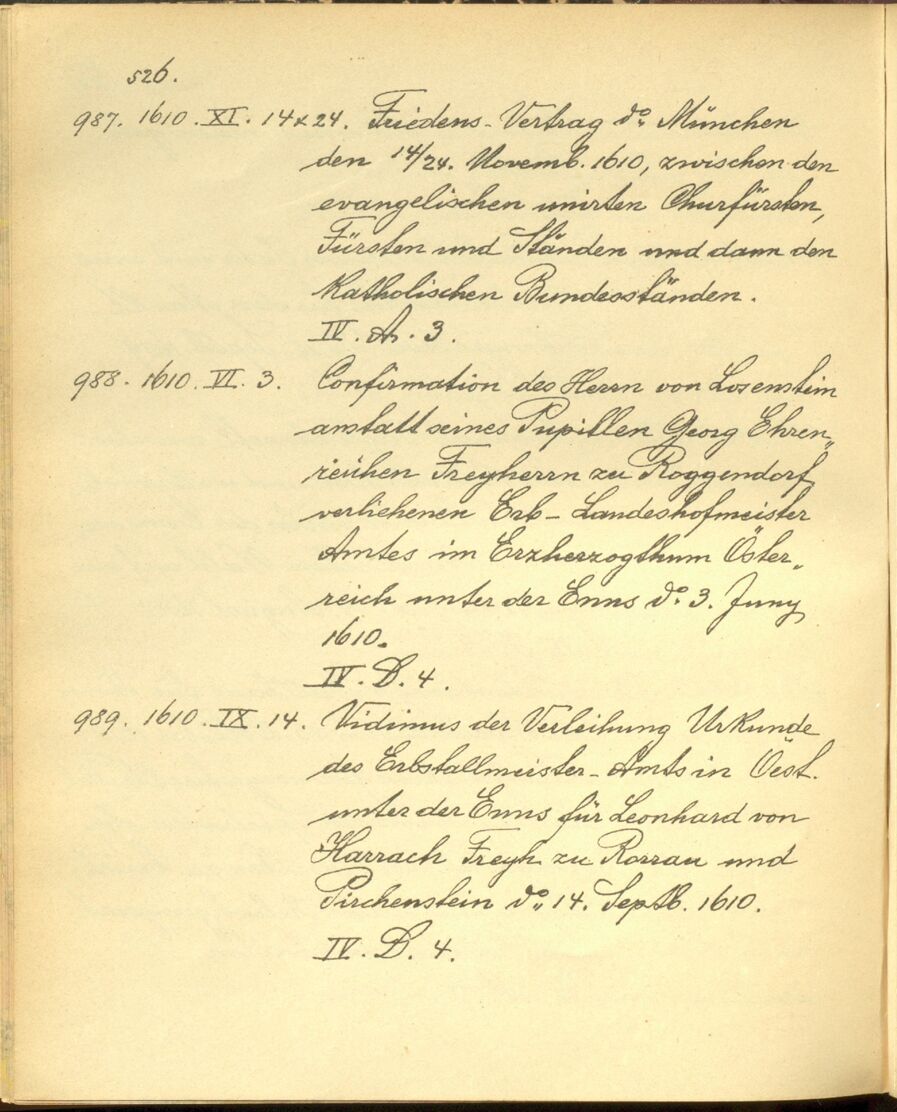 526.
987. 1610. XI. 14 x 24. Friedens-Vertrag do. München
den 14/24. Novemb. 1610, zwischen den
evangelischen unirten Churfürsten,
Fürsten und Ständen und dann den
Katholischen Bundesständen.
IV. A. 3.
988. 1610. VI. 3. Confirmation des Herrn von Losenstein
anstatt seines Pupillen Georg Ehren„
reichen Freyherrn zu Roggendorf
verliehenen Erb-Landeshofmeister
Amtes im Erzherzogthum Öster„
reich unter der Enns do. 3. Juny
1610.
IV. D. 4.
989. 1610. IX. 14. Vidimus der Verleihung Urkunde
des Erbstallmeister-Amts in Oest.
unter der Enns für Leonhard von
Harrach Freyh. zu Rorrau und
Pirchenstein do. 14. Septb. 1610.
IV. D. 4.